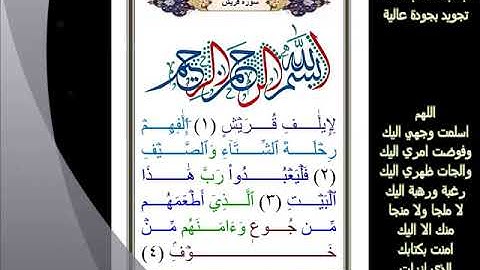 سورة قريش
بسم الله الرحمن الرحيم
لِإِيلَٰفِ قُرَيْشٍ (١) إِۦلَٰفِهِمْ
رِحْلَةَ ٱلشِّتَآءِ وَٱلصَّيْفِ
(٢) فَلْيَعْبُدُوا۟ رَبَّ هَٰذَا
ٱلْبَيْتِ (٣) ٱلَّذِىٓ أَطْعَمَهُم
مِّن جُوعٍ وَءَامَنَهُم مِّنْ
خَوْفٍۭ (٤)
تجويد بجودة عالية
اللهم
اسلمت وجهي اليك
وفوضت امري اليك
والجات ظهري اليك
رغبة ورهبة اليك
لا ملجا ولا منجا
منك الا اليك
امنت بكتابك
الذي انزلت